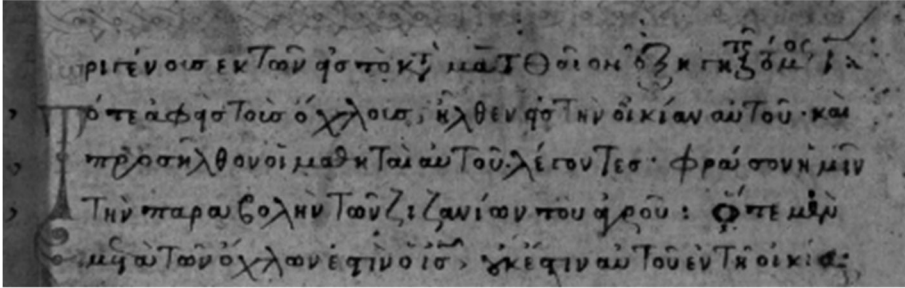 ριγένους εκ τῶν εἰς τὸ κτ ματθαῖον ἐξηγητικῶν τόμος ι
Τότε ἀφεὶς τοὺς ὄχλους, ἦλθεν εἰς τὴν οἰκίαν αὐτοῦ· καὶ
προσῆλθον οἱ μαθηταὶ αὐτοῦ λέγοντες· φράσον ἡμῖν
τὴν παραβολὴν τῶν ζιζανίων τοῦ ἀγροῦ: Ὅτε μὲν
μετὰ τῶν ὄχλων ἐστὶν ὁ ισ, οὐκ ἔστιν αὐτοῦ ἐν τῇ οἰκίᾳ·